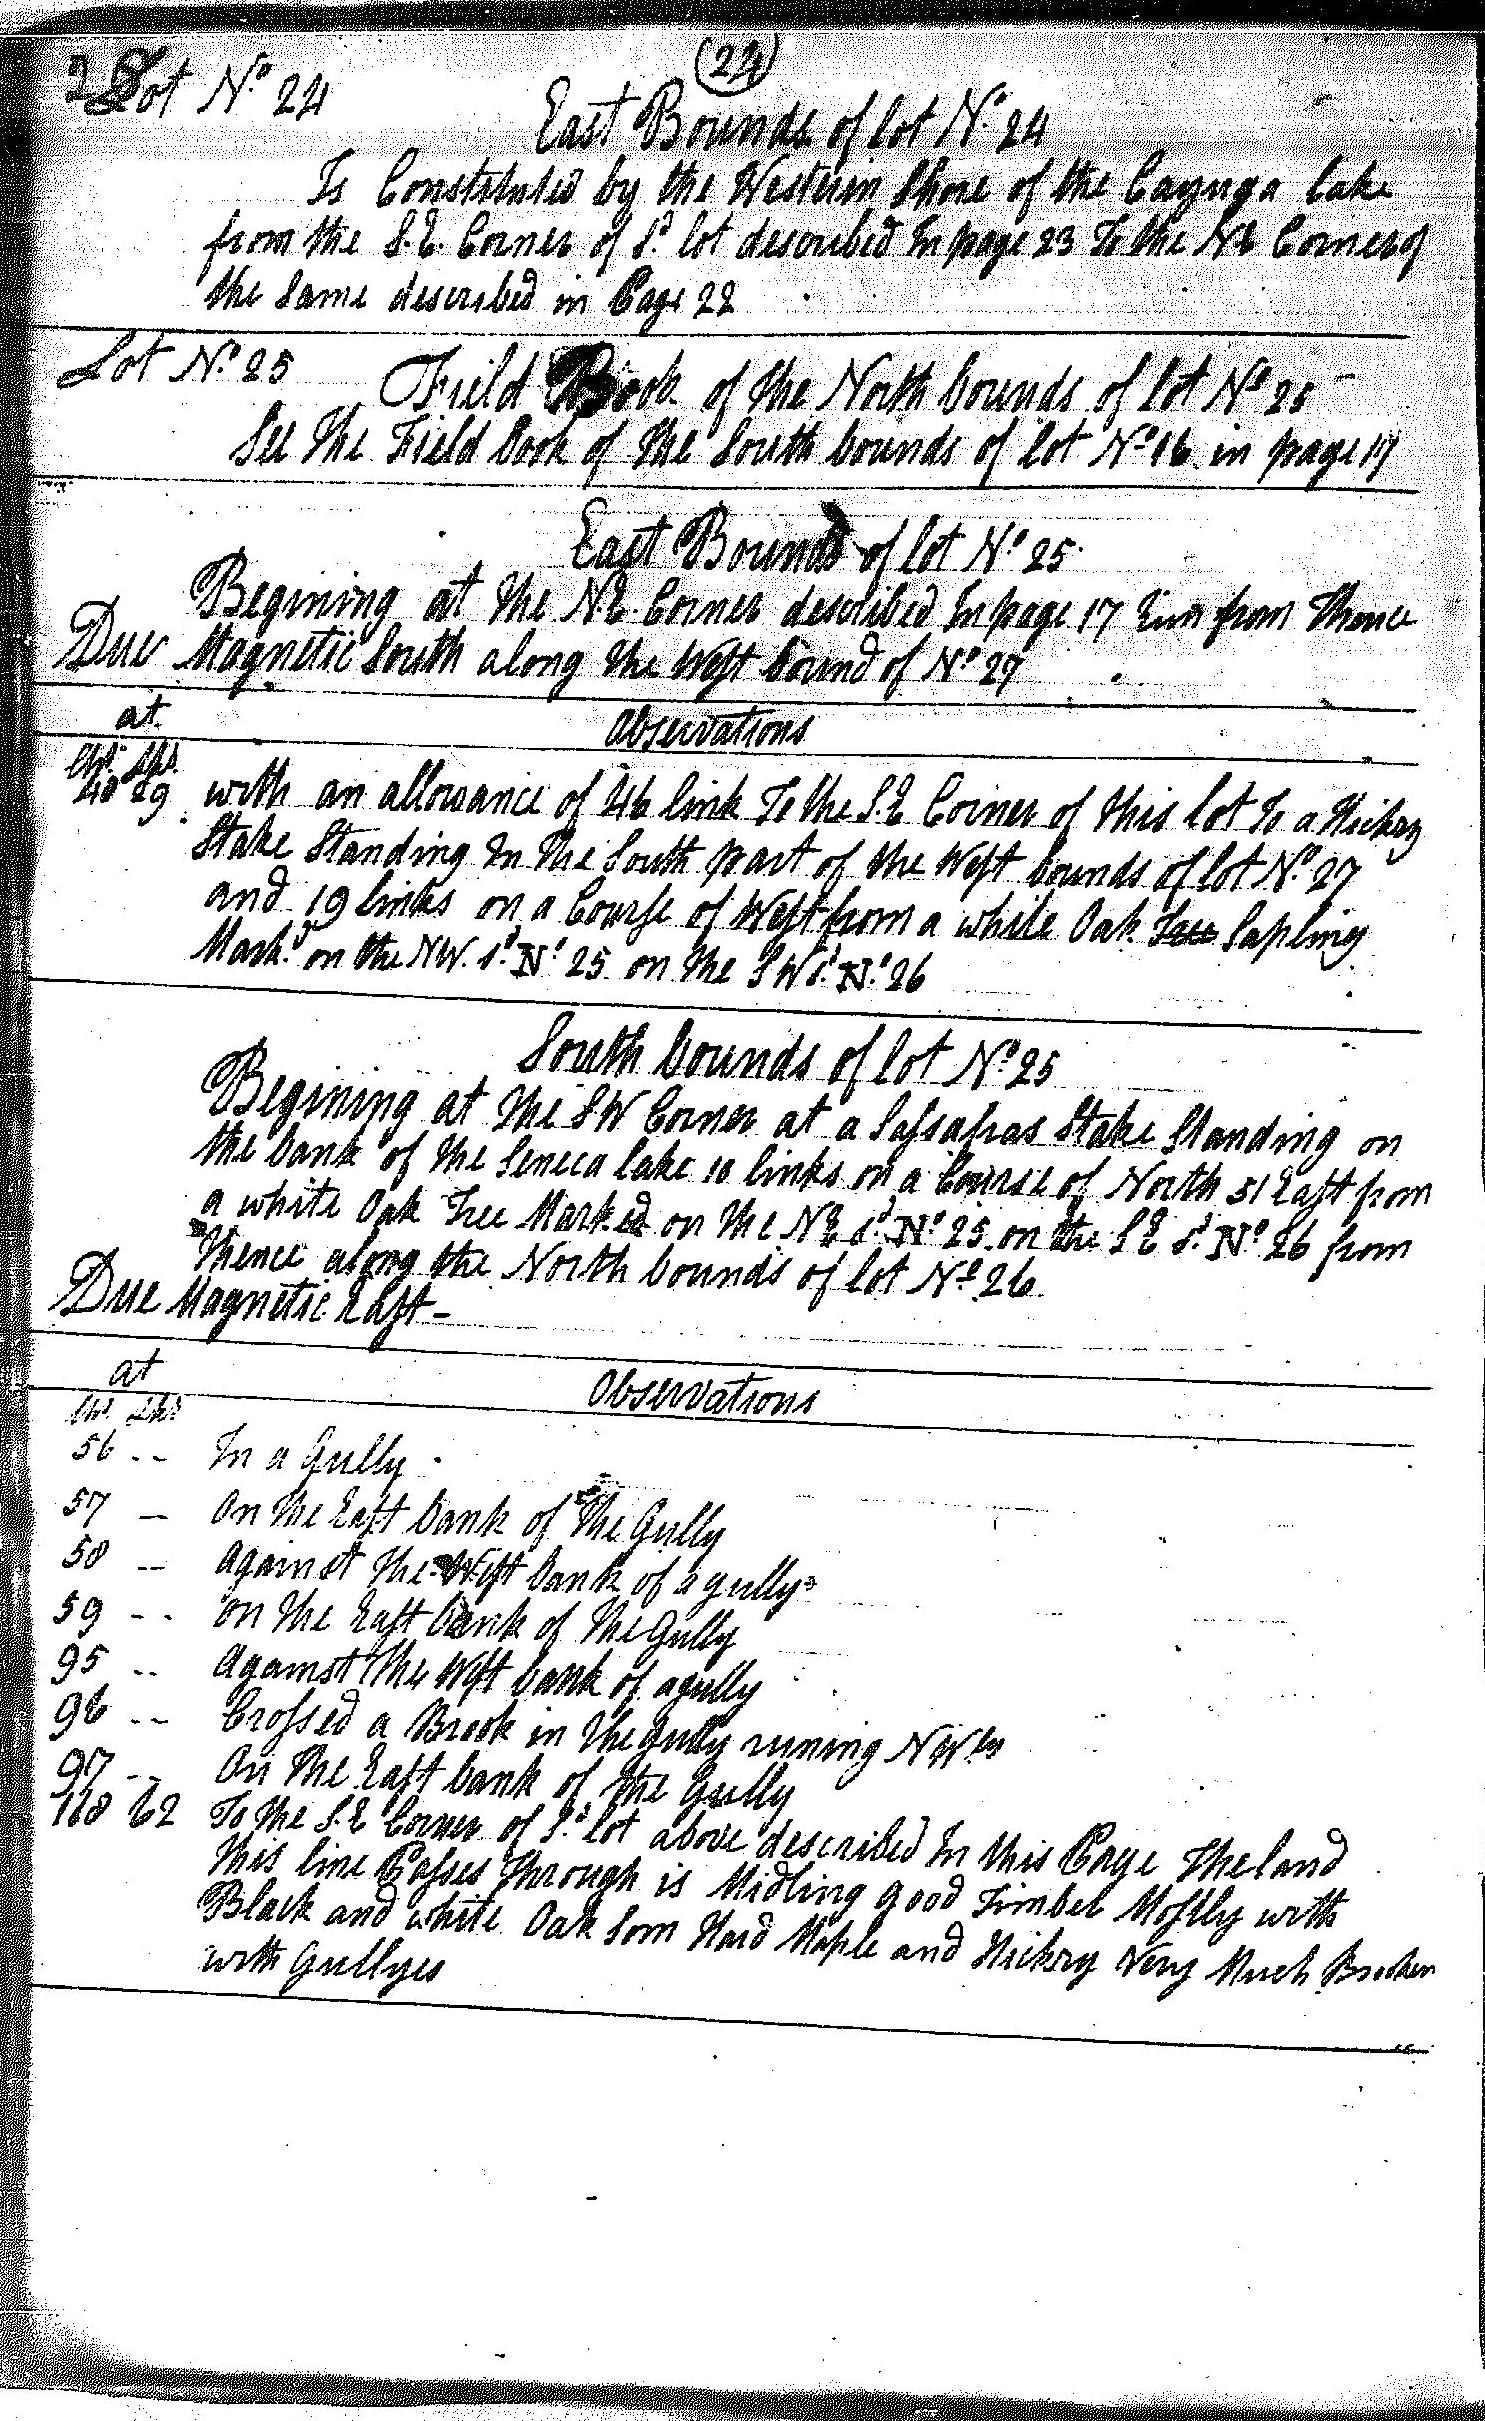 (24)
Lot No 24
East Bounds of lot No 24
Is Constituted by the Western Shore of the Cayuga Lake
from the S.E. Corner of Sd lot described In page 23 To the NE Corner of
the Same described in Page 22
Lot No 25
Field Book of the North bounds of lot No 25
See The Field book of the South bounds of lot No 16 in page 17
East Bounds of lot No 25
Begining at the N.E. Corner described In page 17 Run from Thence
Due Magnetic South along the West bound of No 27
at
Observations
Chs Lks
48 29 with an allowance of 46 link To the S.E Corner of this lot to a Hickry
Stake Standing In the South part of the West bounds of lot No 27
and 19 links on a Course of West from a white Oak Tree Sapling
Markd on the NW. sd No 25 on the SW sd No 26
South bounds of lot No 25
Begining at the SW Corner at a Sassafras Stake Standing on
the bank of the Seneca lake 10 links on a Course of North 51 East from
a white Oak Tree Marked on the NE sd No 25 on the SE sd No 26 from
Thence along the North bounds of lot No 26
Due Magnetic East -
at
Observations
Chs Lks
56 -- In a Gully
57 -- On the East bank of the Gully
58 -- against the West bank of a gully
59 -- on the East bank of the Gully
95 -- against the West bank of a gully
96 -- Crossed a Brook in the gully runing NWly
97 -- On the East bank of the Gully
118 62 To the S.E Corner of Sd lot above described In this Page The land
this line Passes through is Midling good Timber Mostly with
Black and white Oak Som Hard Maple and Hickry Very Much Broken
with Gullyes